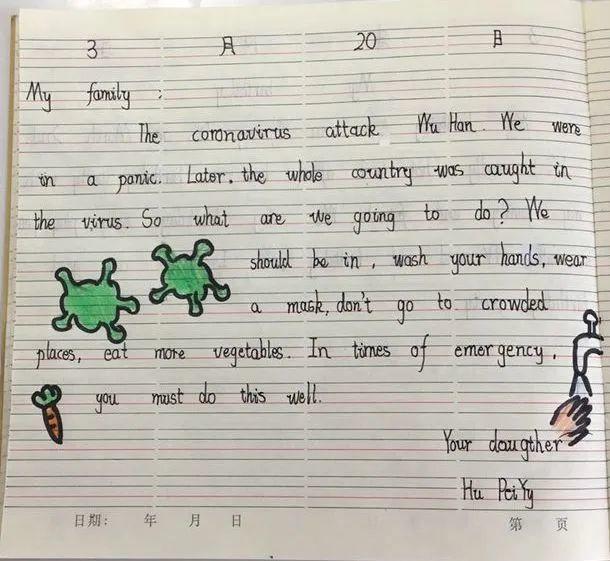 3 月 20 日
My family :
The coronavirus attack Wu Han. We were
in a panic. Later, the whole country was caught in
the virus. So what are we going to do? We
should be in, wash your hands, wear
a mask, don't go to crowded
places, eat more vegetables. In times of emergency,
you must do this well.
Your daugther
Hu PeiYy
日期: 年 月 日 第 页